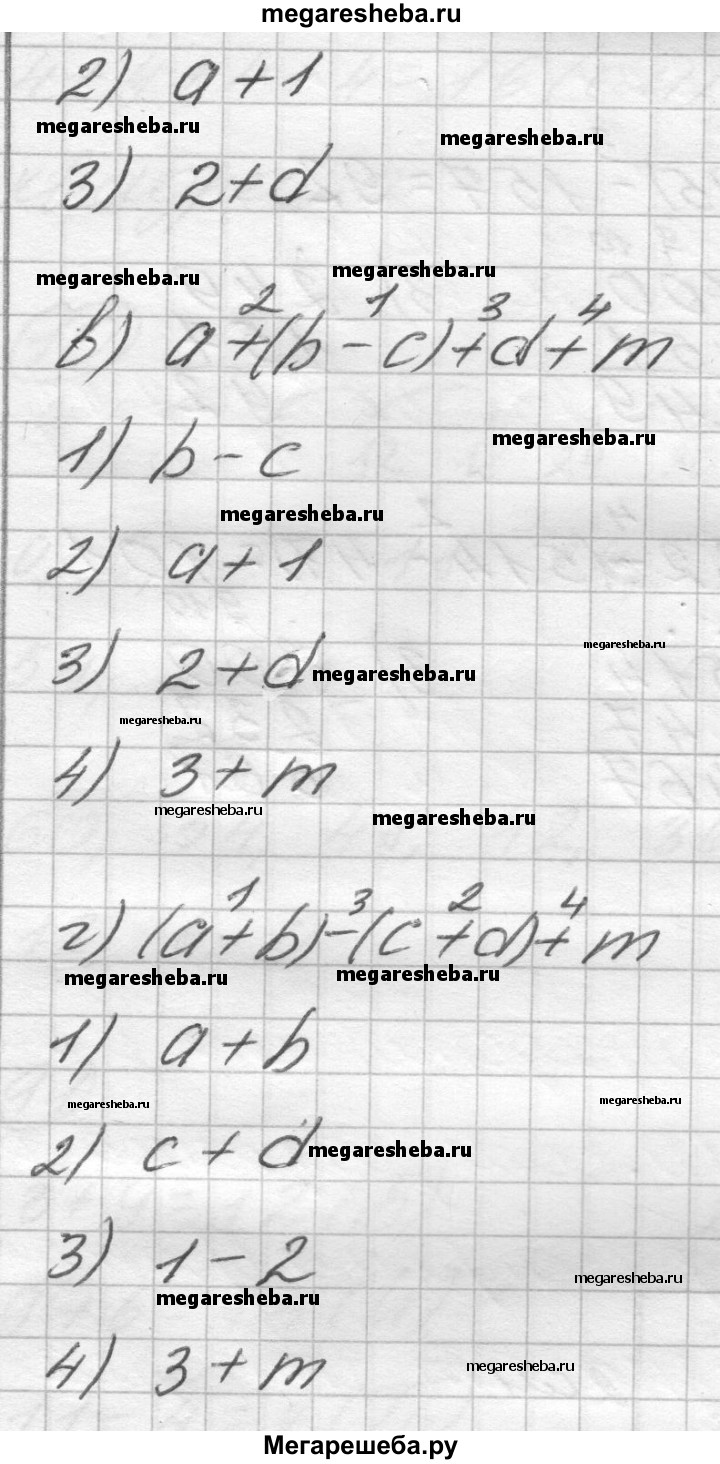 megaresheba.ru
2) a + 1
megaresheba.ru
megaresheba.ru
3) 2 + d
megaresheba.ru
megaresheba.ru
2 1 3 4
в) a + (b - c) + d + m
megaresheba.ru
1) b - c
megaresheba.ru
2) a + 1
megaresheba.ru
3) 2 + d
megaresheba.ru
megaresheba.ru
4) 3 + m
megaresheba.ru
megaresheba.ru
1 3 2 4
г) (a + b) - (c + d) + m
megaresheba.ru
megaresheba.ru
1) a + b
megaresheba.ru
megaresheba.ru
2) c + d
megaresheba.ru
3) 1 - 2
megaresheba.ru
megaresheba.ru
4) 3 + m
megaresheba.ru
Мегарешеба.ру